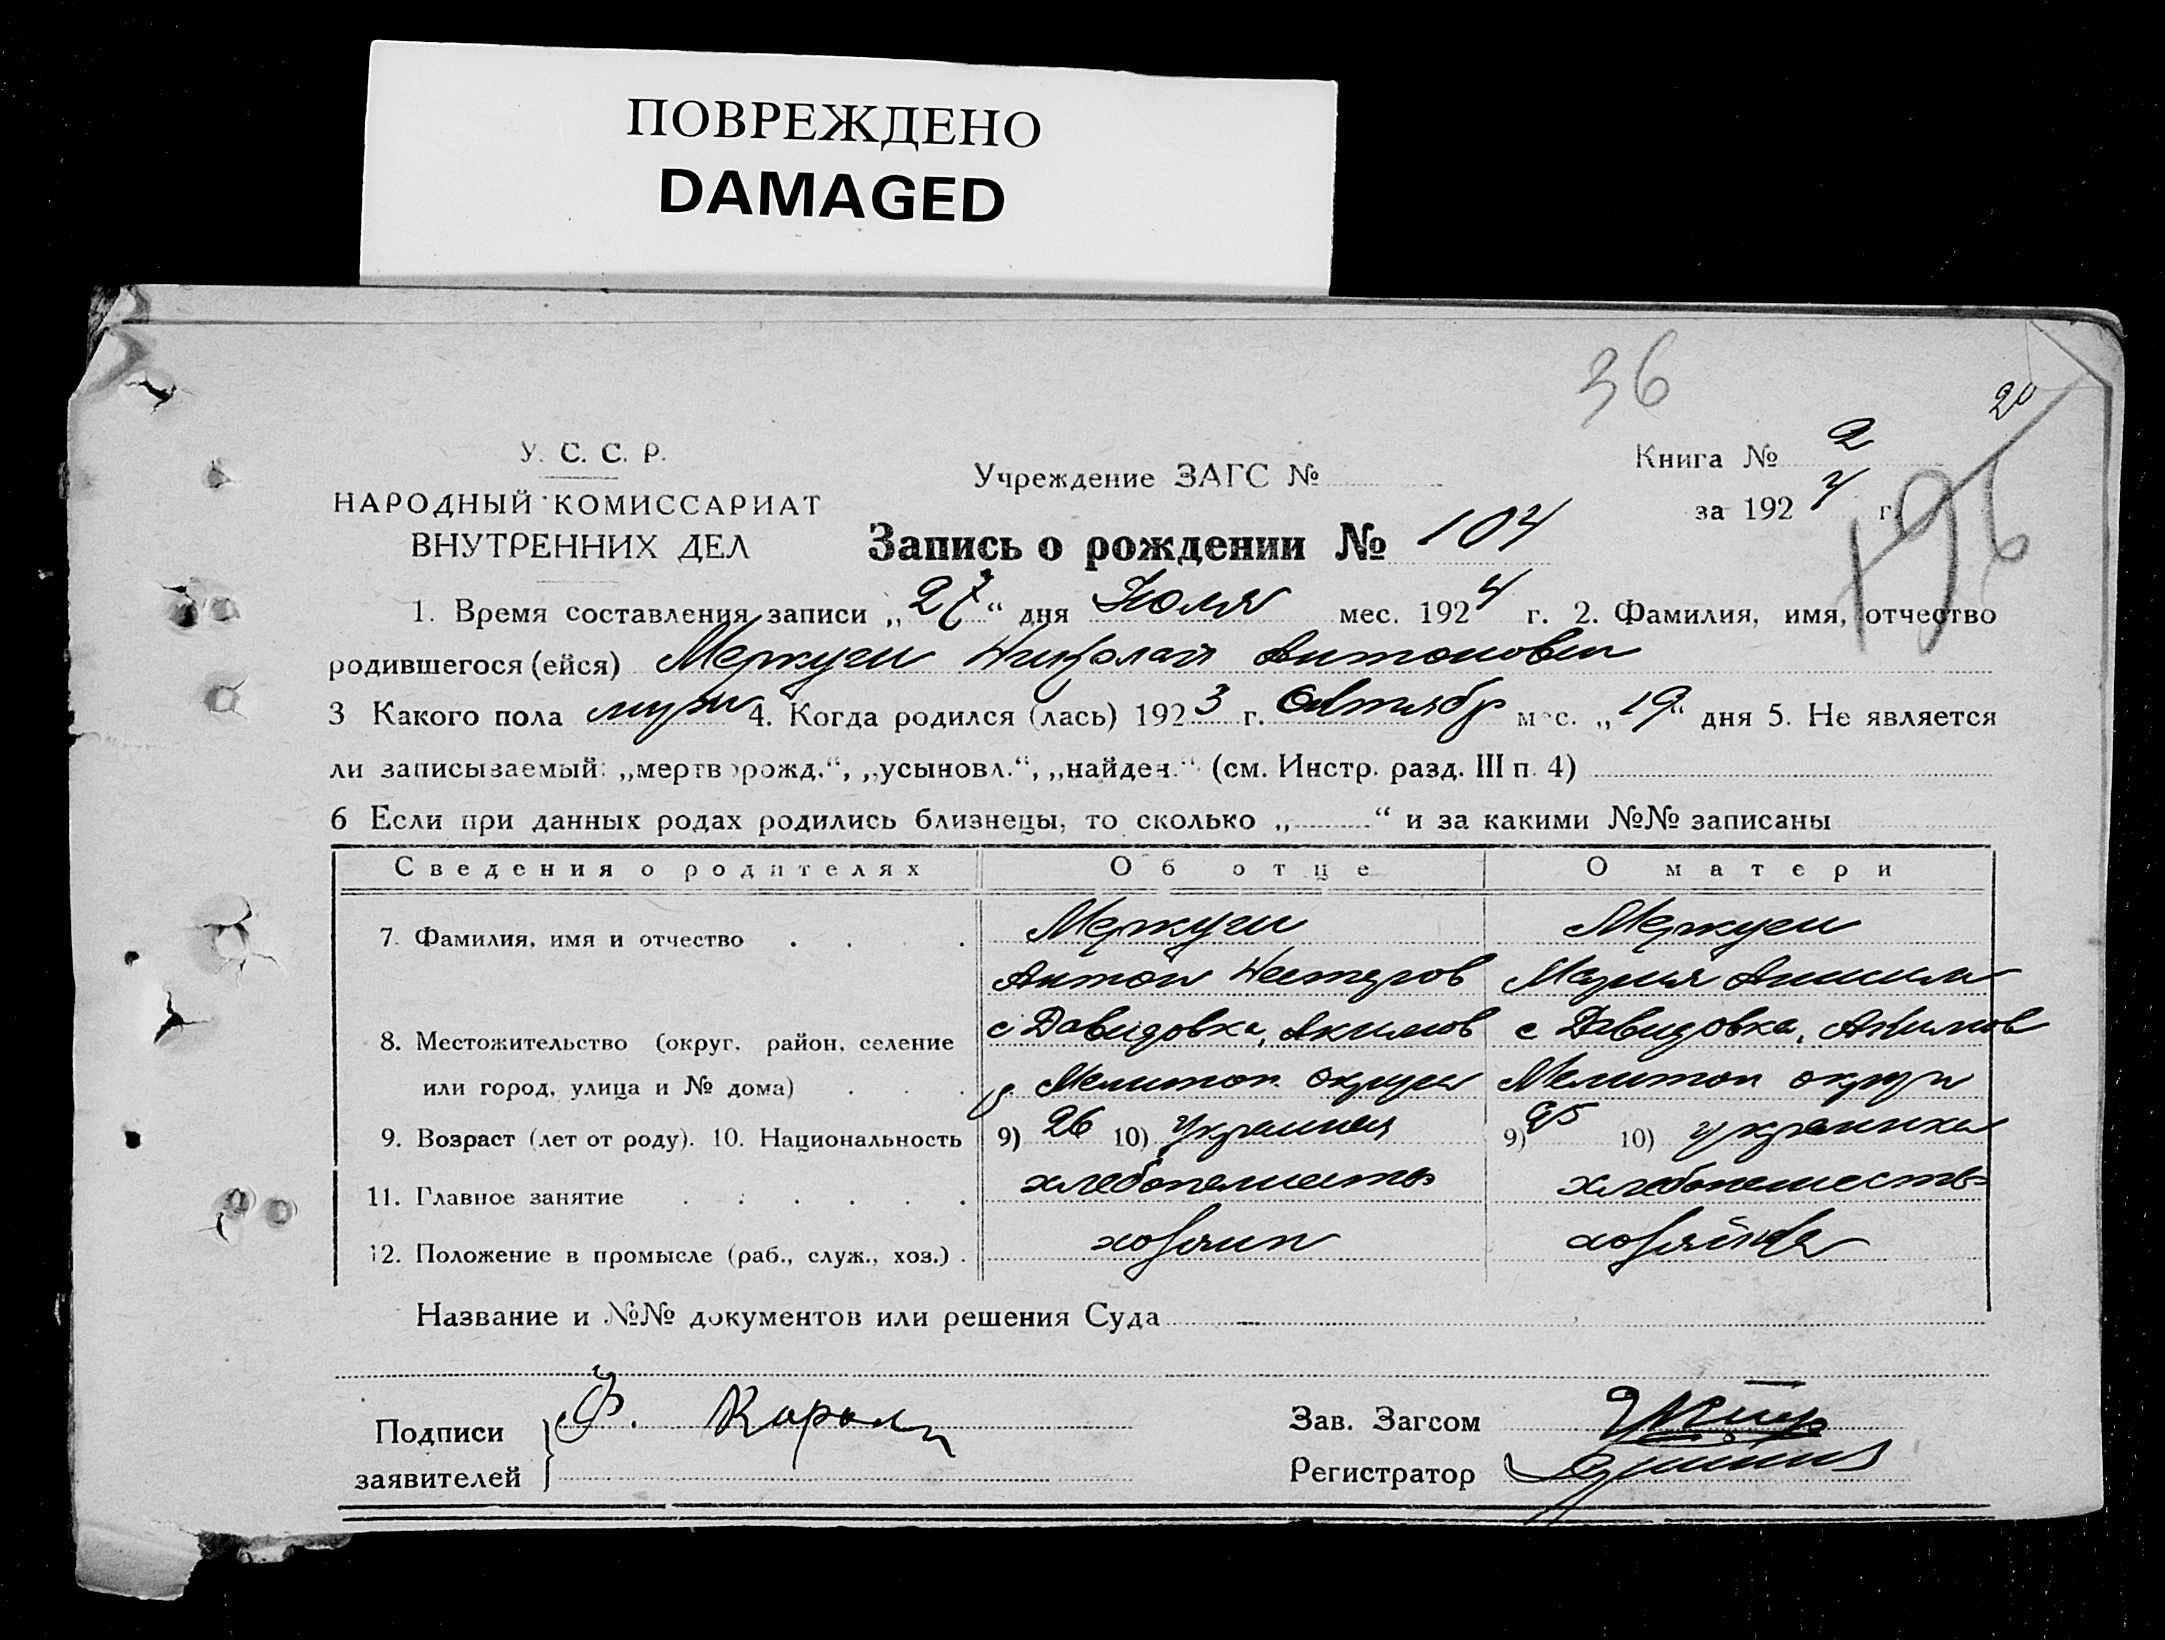 ПОВРЕЖДЕНО
DAMAGED
36
20
196
У. С. С. Р.
НАРОДНЫЙ КОМИССАРИАТ
ВНУТРЕННИХ ДЕЛ
Учреждение ЗАГС №
Книга № 2
за 1924 г.
Запись о рождении № 104
1. Время составления записи „27“ дня Июля мес. 1924 г. 2. Фамилия, имя, отчество
родившегося (ейся) Меркули Николай Антонович
3 Какого пола муж 4. Когда родился (лась) 1923 г. Октябр мес. „19“ дня 5. Не является
ли записываемый: „мертворожд.“, „усыновл.“, „найден.“ (см. Инстр. разд. III п. 4)
6 Если при данных родах родились близнецы, то сколько „ “ и за какими №№ записаны
Сведения о родителях Об отце О матери
7. Фамилия, имя и отчество
Антон Нестеров Мария
8. Местожительство (округ, район, селение с Давидовка, Акимов с Давидовка, Акимов
или город, улица и № дома) р. Мелитоп. округи Мелитоп округи
9. Возраст (лет от роду). 10. Национальность 9) 26 10) 9) 25 10) украинка
11. Главное занятие хлебопашество хлебопашество
12. Положение в промысле (раб., служ., хоз.) хозяин хозяйка
Название и №№ документов или решения Суда
Подписи заявителей Ф. Король
Зав. Загсом
Регистратор